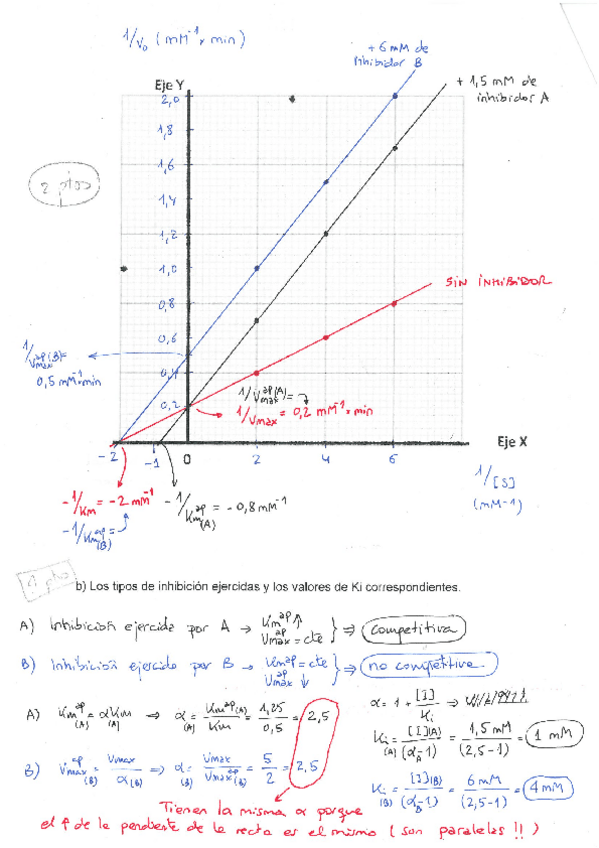 1/V₀ (mM⁻¹ × min)
+ 6 mM de
inhibidor B
Eje Y
+ 1,5 mM de
inhibidor A
2,0
1,8
1,6
1,4
2 ptos
1,2
1,0
SIN INHIBIDOR
0,8
0,6
1/Vmax^ap(B) =
0,5 mM⁻¹·min
0,4
1/Vmax^ap(A) =
0,2
1/Vmax = 0,2 mM⁻¹·min
Eje X
-2 -1 0 2 4 6
1/[S]
(mM-1)
-1/Km = -2 mM⁻¹
-1/Km^ap (A) = -0,8 mM⁻¹
-1/Km^ap (B) =
1 pto
b) Los tipos de inhibición ejercidas y los valores de Ki correspondientes.
A) Inhibición ejercida por A → Km^ap ↑ Vmax^ap = cte } ⇒ competitiva
B) Inhibición ejercida por B → Km^ap = cte Vmax^ap ↓ } ⇒ no competitiva
A) Km^ap (A) = αKm (A) ⇒ α (A) = Km^ap(A)/Km = 1,25/0,5 = 2,5
α = 1 + [I]/Ki ⇒
Ki (A) = [I](A)/(αA-1) = 1,5 mM/(2,5-1) = 1 mM
B) Vmax^ap (B) = Vmax/α(B) ⇒ α (B) = Vmax/Vmax^ap (B) = 5/2 = 2,5
Ki (B) = [I](B)/(αB-1) = 6 mM/(2,5-1) = 4 mM
Tienen la misma α porque
el ↑ de la pendiente de la recta es el mismo (son paralelas !!)